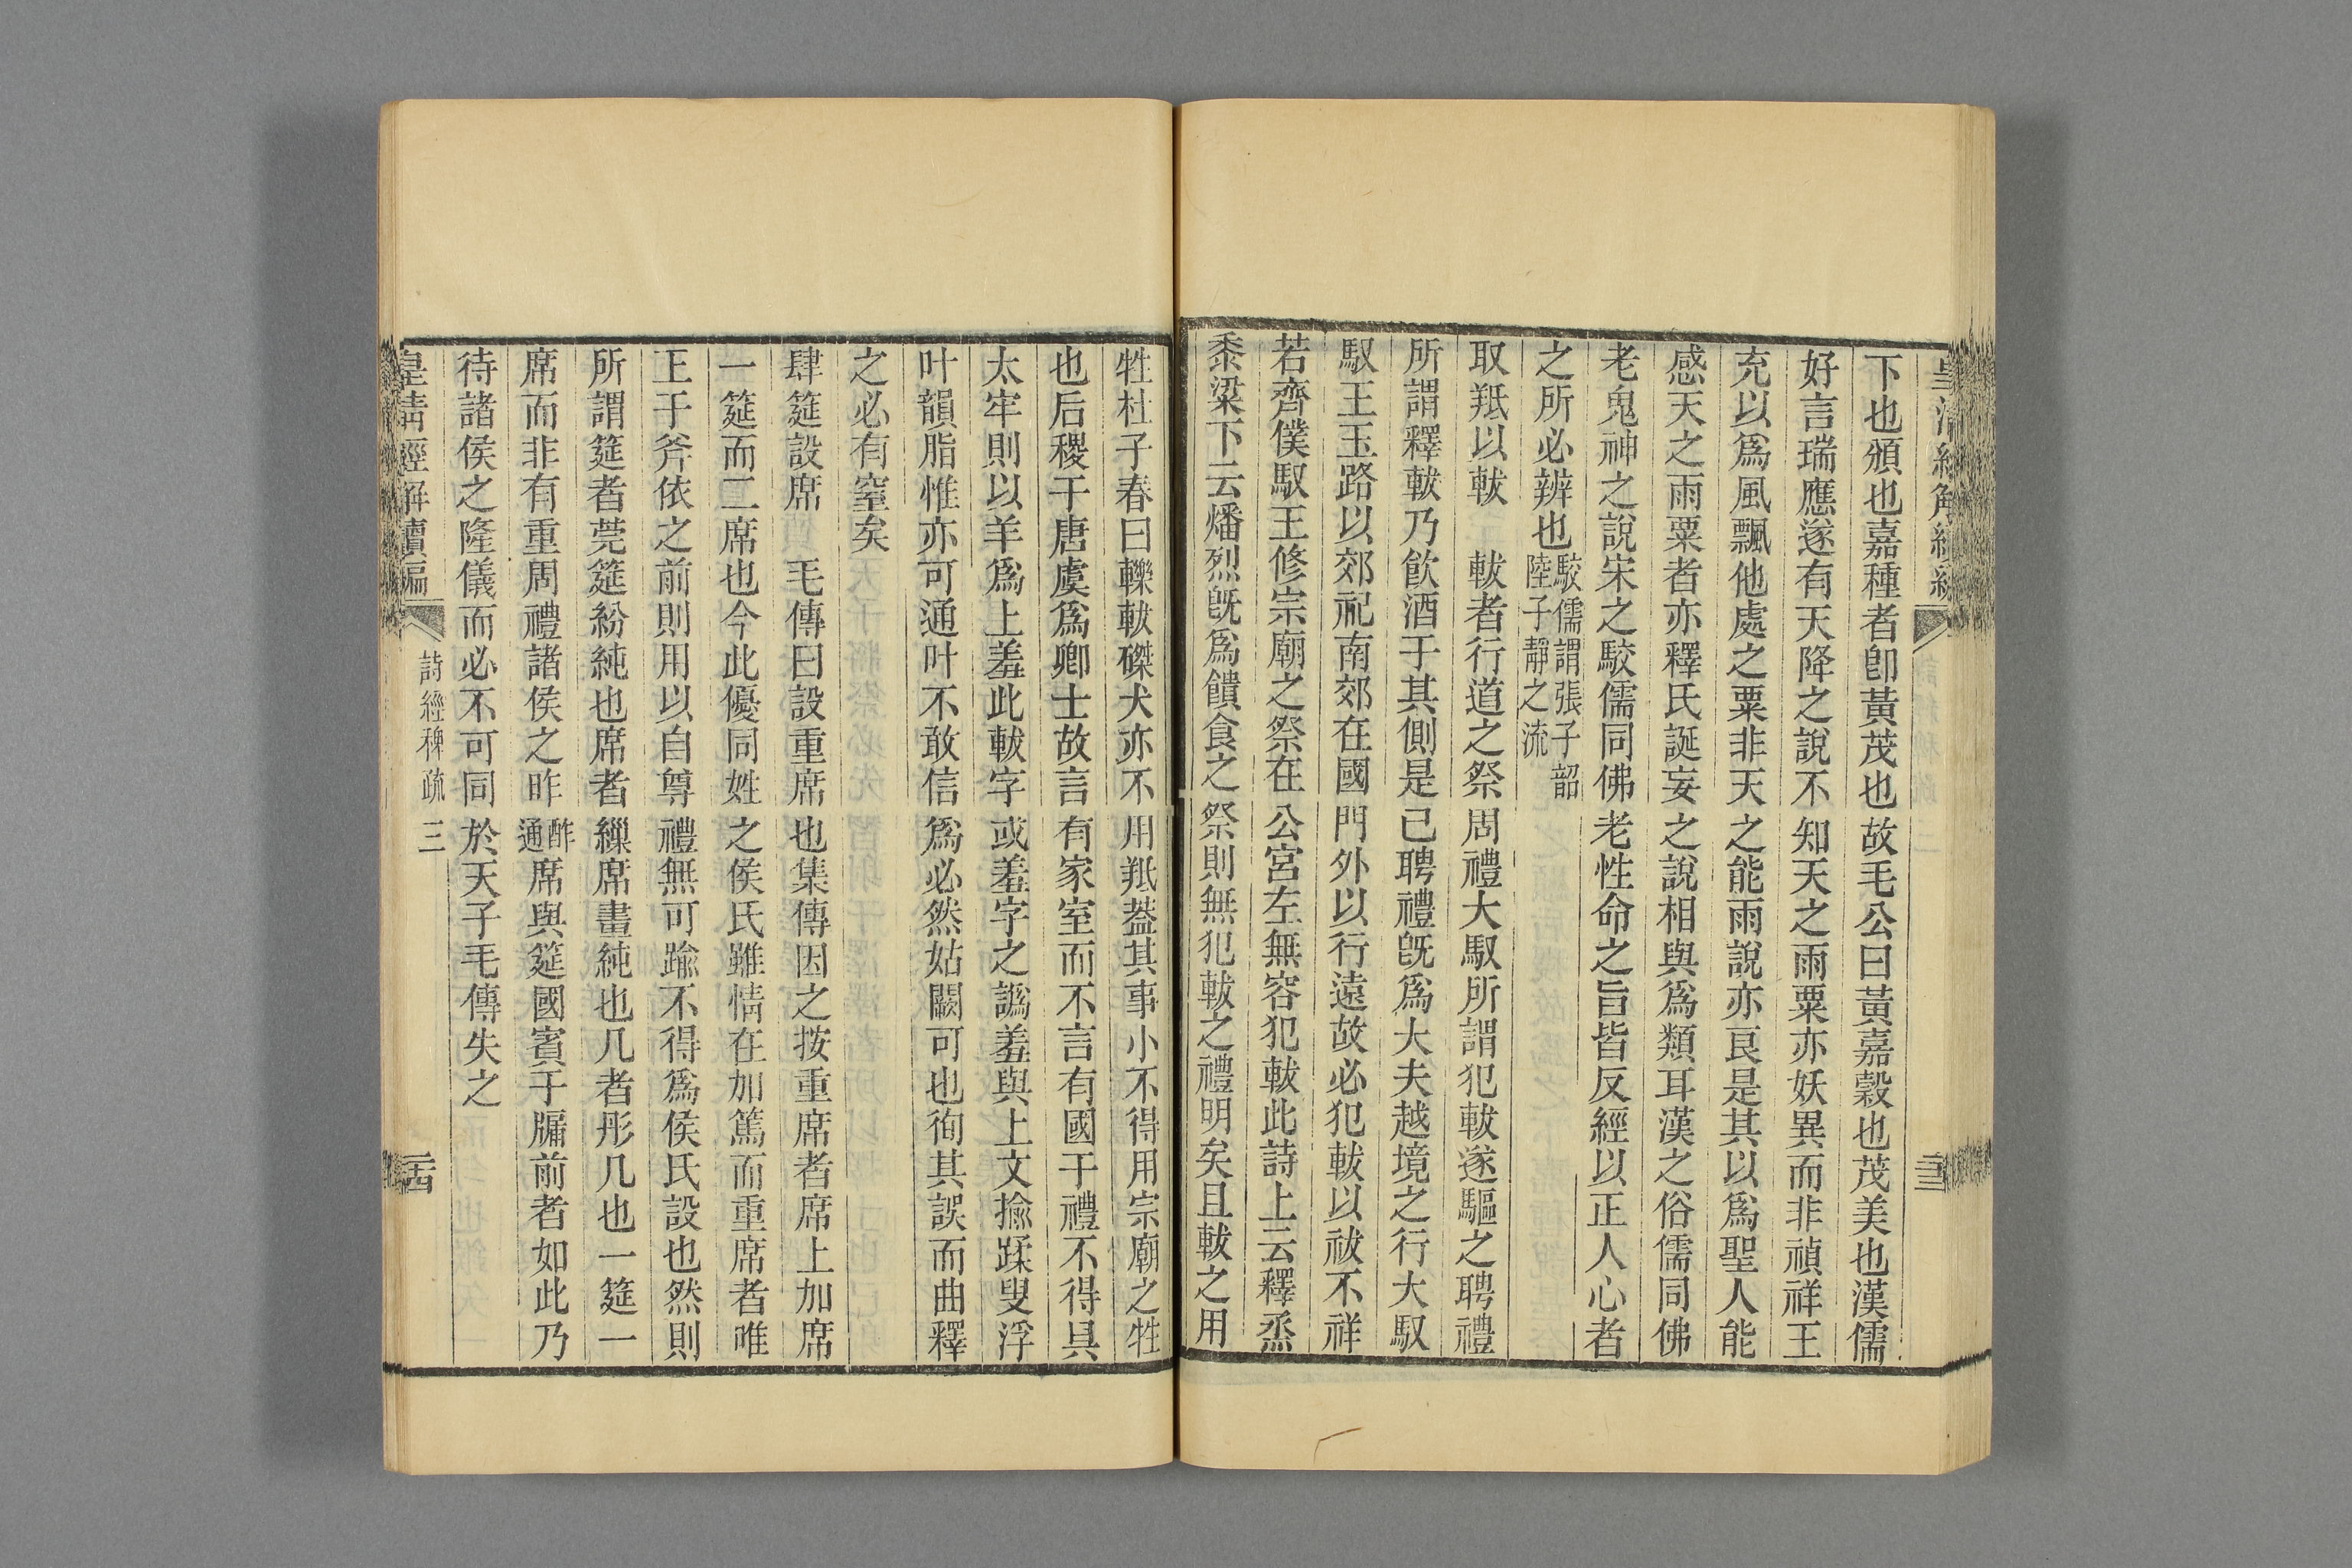 下也頒也嘉種者卽黃茂也故毛公曰黃嘉穀也茂美也漢儒
好言瑞應遂有天降之說不知天之雨粟亦妖異而非禎祥王
充以爲風飄他處之粟非天之能雨說亦良是其以爲聖人能
感天之雨粟者亦釋氏誕妄之說相與爲類耳漢之俗儒同佛
老鬼神之說宋之駮儒同佛老性命之旨皆反經以正人心者
之所必辨也駮儒謂張子韶陸子靜之流
取羝以軷　軷者行道之祭周禮大馭所謂犯軷遂驅之聘禮
所謂釋軷乃飮酒于其側是已聘禮旣爲大夫越境之行大馭
馭王玉路以郊祀南郊在國門外以行遠故必犯軷以祓不祥
若齊僕馭王修宗廟之祭在公宮左無容犯軷此詩上云釋烝
黍粱下云燔烈旣爲饋食之祭則無犯軷之禮明矣且軷之用
牲杜子春曰轢軷磔犬亦不用羝葢其事小不得用宗廟之牲
也后稷于唐虞爲卿士故言有家室而不言有國于禮不得具
太牢則以羊爲上羞此軷字或羞字之譌羞與上文揄蹂叟浮
叶韻脂惟亦可通叶不敢信爲必然姑闕可也徇其誤而曲釋
之必有窒矣
肆筵設席　毛傳曰設重席也集傳因之按重席者席上加席
一筵而二席也今此優同姓之侯氏雖情在加篤而重席者唯
王于斧依之前則用以自尊禮無可踰不得爲侯氏設也然則
所謂筵者莞筵紛純也席者繅席畫純也几者彤几也一筵一
席而非有重周禮諸侯之昨酢通席與筵國賓于牖前者如此乃
待諸侯之隆儀而必不可同於天子毛傳失之
皇淸經解續編　詩經稗疏三